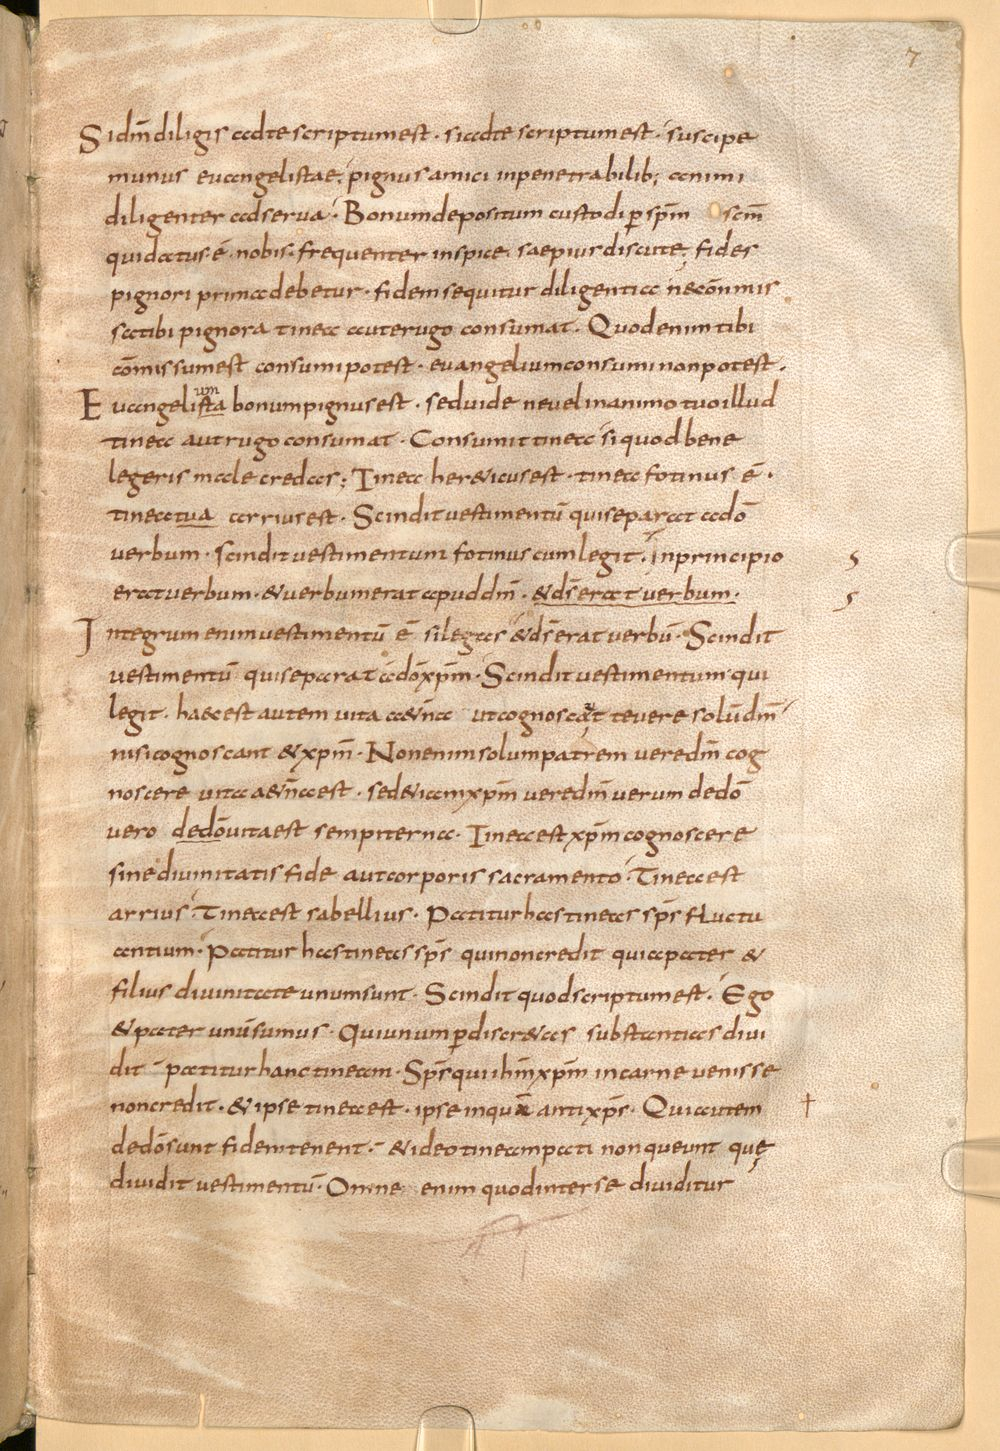 7
Si dm̄ diligis ad te scriptum est · si ad te scriptum est · suscipe
munus euangelistae; pignus amici inpenetrabilib; animi
diligenter adserua · Bonum depositum custodi ꝑ sp̄m sc̄m
qui datus ē nobis · frequenter inspice, saepius discute, fides
pignori prima debetur · fidem sequitur diligentia ne cōmis
sa tibi pignora tinea aut erugo consumat · Quod enim tibi
cōmissum est consumi potest · euangelium consumi non potest ·
um
Euangelista bonum pignus est · sed uide ne uel in animo tuo illud
tinea aut rugo consumat · Consumit tinea si quod bene
legeris male credas; Tinea hereticus est · tinea fotinus ē ·
tinea tua arrius est · Scindit uestimentū qui separat a dō
uerbum · scindit uestimentum fotinus cum legit · In principio
erat uerbum · & uerbum erat apud dm̄ · & ds̄ erat uerbum ·
Integrum enim uestimentū ē si legas & ds̄ erat uerbū · Scindit
uestimentū qui separat a dō xp̄m · Scindit uestimentum qui
legit · haec est autem uita a&n̄a ut cognoscat te uere solū dm̄
nisi cognoscant & xp̄m · Non enim solum patrem uere dm̄ cog
noscere uita a&n̄a est · sed & iam xp̄m uere dm̄ uerum de dō
uero de dō uita est sempiterna · Tinea est xp̄m cognoscere
sine diuinitatis fide aut corporis sacramento · Tinea est
arrius · Tinea est sabellius · Patitur has tineas sp̄s fluctu
antium · Patitur has tineas sp̄s qui non credit quia pater &
filius diuinitate unum sunt · Scindit quod scriptum est · Ego
& pater unū sumus · Qui unum ꝑ discr&as substantias diui
dit patitur hanc tineam · Sp̄s qui ihm̄ xp̄m in carne uenisse
non credit · & ipse tinea est · ipse inquā antixp̄s · Qui autem
de dō sunt fidem tenent · & ideo tineam pati non queunt quę
diuidit uestimentū · Omne enim quod inter se diuiditur